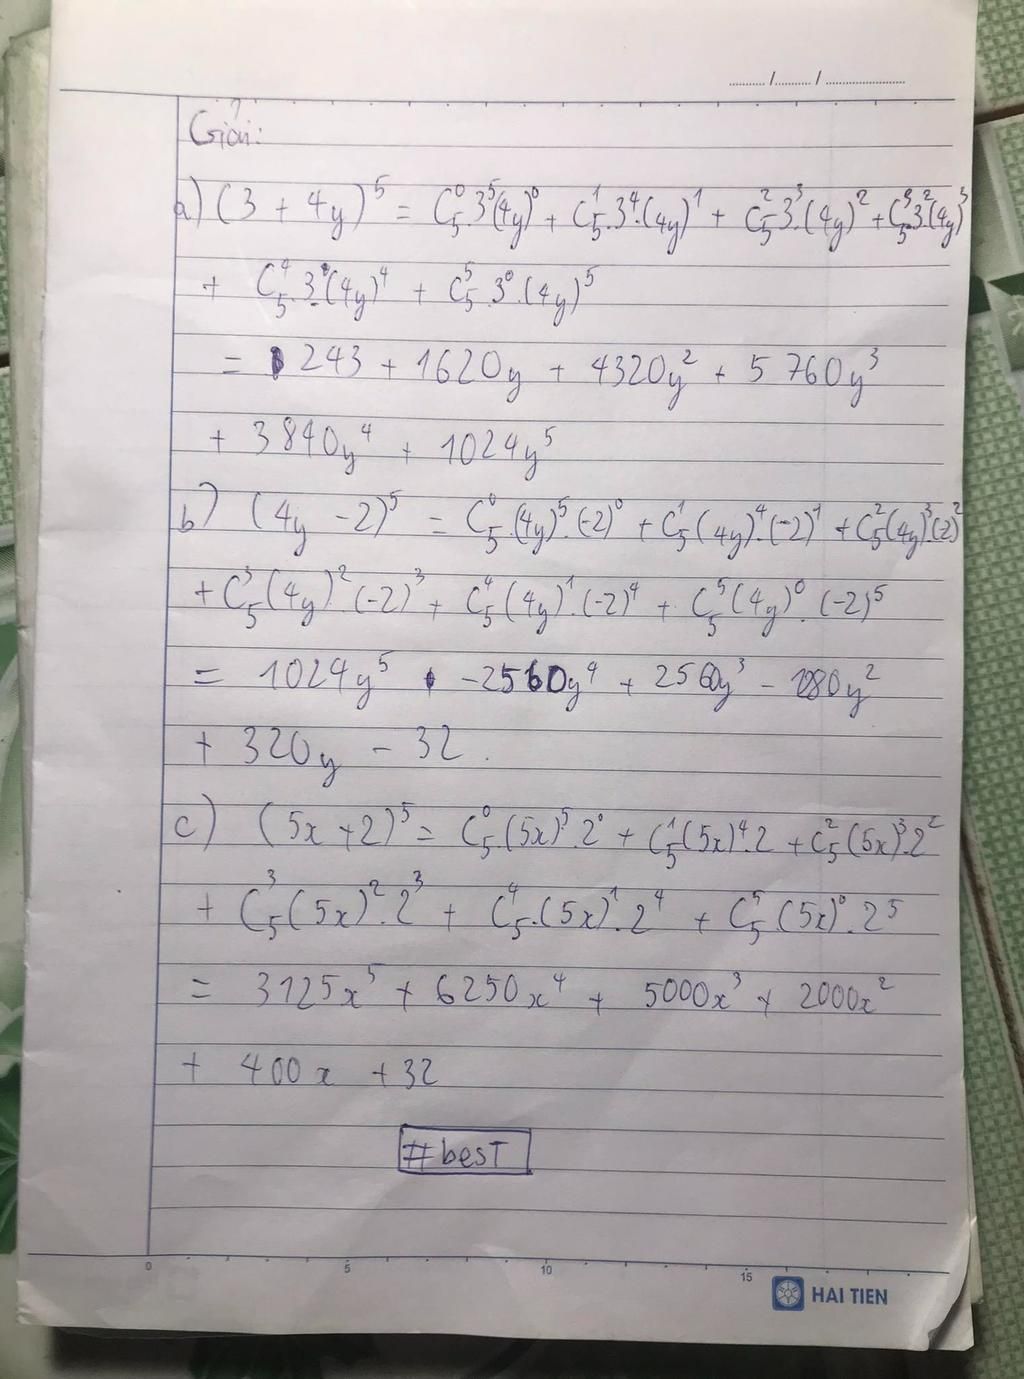 ........../........../......................
Giải:
a) (3 + 4y)⁵ = C₅⁰.3⁵(4y)⁰ + C₅¹.3⁴.(4y)¹ + C₅².3³.(4y)² + C₅³.3².(4y)³
+ C₅⁴.3¹.(4y)⁴ + C₅⁵.3⁰.(4y)⁵
= 243 + 1620y + 4320y² + 5760y³
+ 3840y⁴ + 1024y⁵
b) (4y - 2)⁵ = C₅⁰.(4y)⁵.(-2)⁰ + C₅¹(4y)⁴.(-2)¹ + C₅²(4y)³.(-2)²
+ C₅³(4y)²(-2)³ + C₅⁴(4y)¹.(-2)⁴ + C₅⁵(4y)⁰.(-2)⁵
= 1024y⁵ - 2560y⁴ + 2560y³ - 1280y²
+ 320y - 32.
c) (5x + 2)⁵ = C₅⁰.(5x)⁵.2⁰ + C₅¹(5x)⁴.2 + C₅²(5x)³.2²
+ C₅³(5x)².2³ + C₅⁴.(5x)¹.2⁴ + C₅⁵(5x)⁰.2⁵
= 3125x⁵ + 6250x⁴ + 5000x³ + 2000x²
+ 400x + 32
#besT
0 5 10 15
HAI TIEN